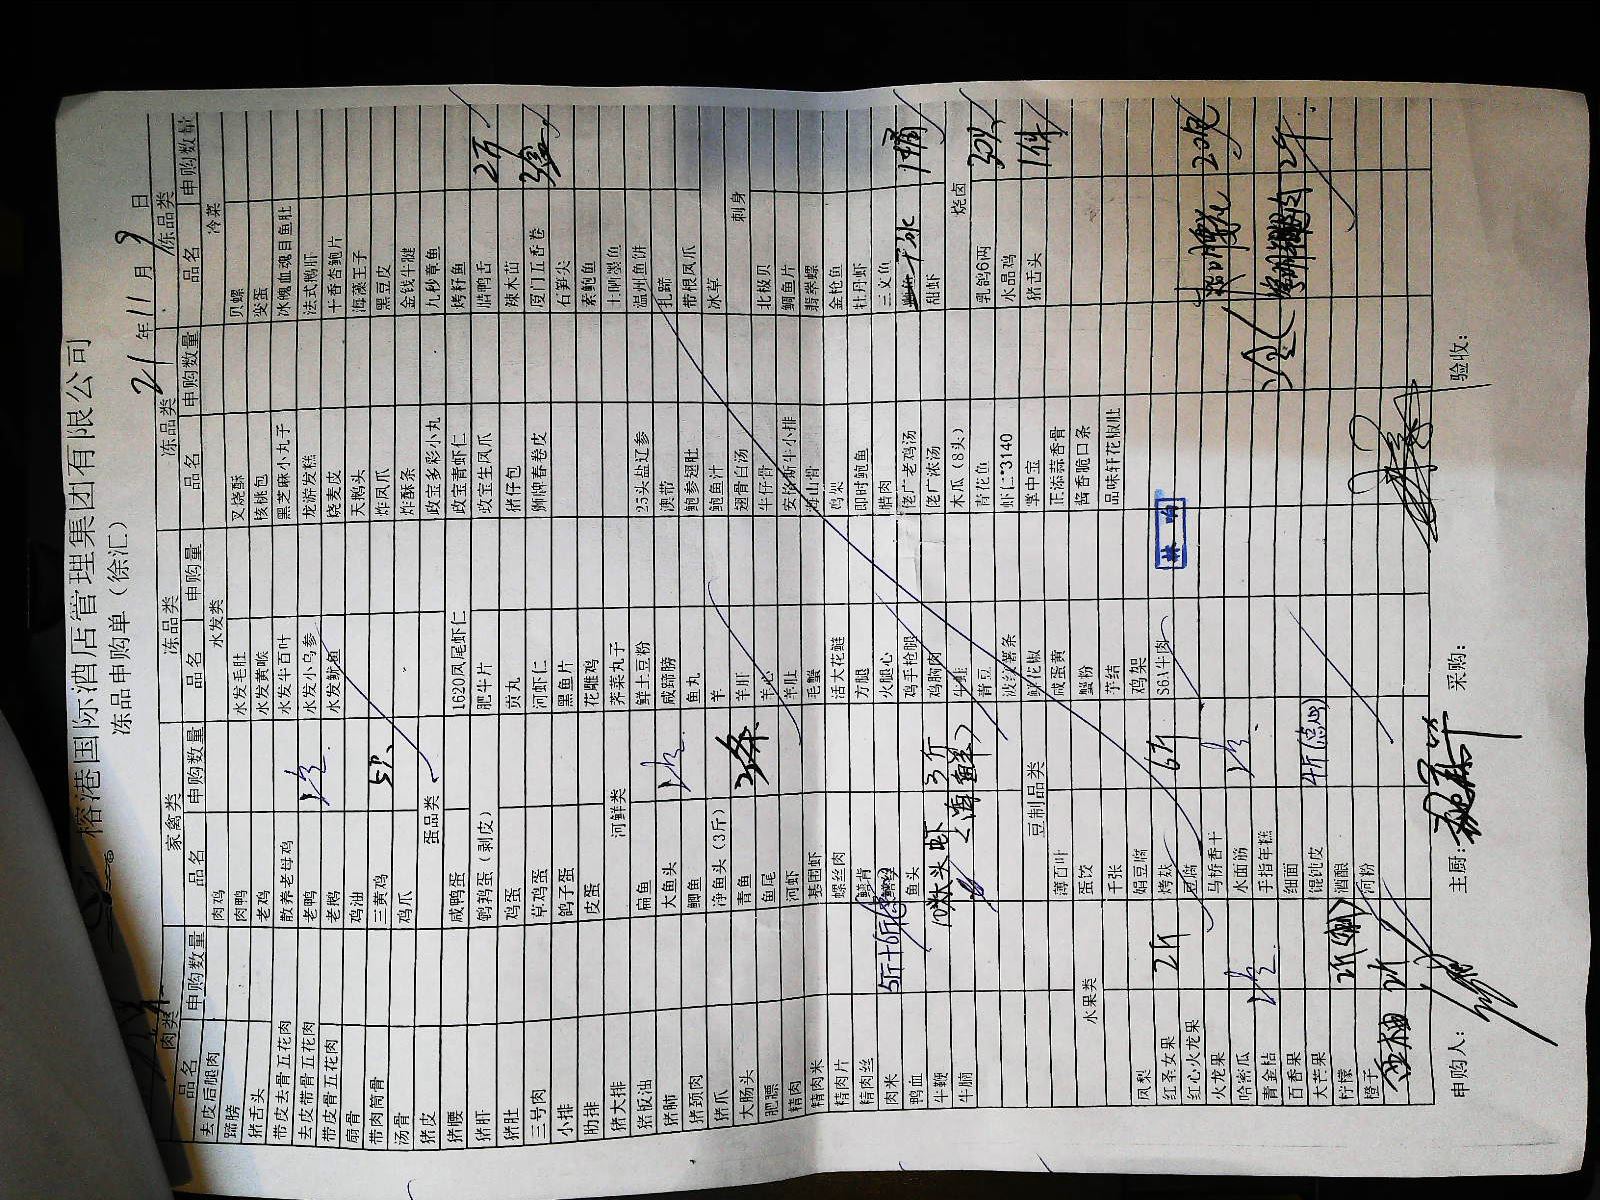 榕港国际酒店管理集团有限公司
冻品申购单（徐汇）
21年11月9日
肉类 家禽类 冻品类 冻品类 冻品类
品名 申购数量 品名 申购数量 品名 申购量 品名 申购数量 品名 申购数量
去皮后腿肉 肉鸡 水发类 冷菜
蹄膀 肉鸭 水发毛肚 叉烧酥 贝螺
猪舌头 老鸡 水发黄喉 核桃包 变蛋
带皮去骨五花肉 散养老母鸡 水发牛百叶 黑芝麻小丸子 冰魄血魂目鱼肚
去皮带骨五花肉 老鸭 水发小乌参 龙游发糕 法式鹅肝
带皮骨五花肉 老鹅 水发鱿鱼 烧麦皮 十香杏鲍片
扇骨 鸡油 天鹅头 海蒸王子
带肉筒骨 三黄鸡 5只 炸凤爪 黑豆皮
汤骨 鸡爪 炸酥条 金钱牛腱
猪皮 蛋品类 政宝多彩小丸 九秒章鱼
猪腰 咸鸭蛋 1620凤尾虾仁 政宝青虾仁 烤籽鱼
猪肝 鹌鹑蛋（剥皮） 肥牛片 政宝生凤爪 腊鸭舌
猪肚 鸡蛋 贡丸 猪仔包 辣木苗
三号肉 草鸡蛋 河虾仁 狮牌春卷皮 厦门五香卷 3盒
小排 鸽子蛋 黑鱼片 石笋尖
肋排 皮蛋 花雕鸡 素鲍鱼
猪大排 河鲜类 荠菜丸子 土晒墨鱼
猪板油 扁鱼 鲜土豆粉 25头盐辽参 温州鱼饼
猪肺 大鱼头 咸蹄膀 澳带 扎蹄
猪颈肉 鲫鱼 鱼丸 鲍参翅肚 带根凤爪
猪爪 净鱼头（3斤） 羊 鲍鱼汁 冰草
大肠头 青鱼 2条 羊肝 翅骨白汤 刺身
肥膘 鱼尾 羊心 牛仔骨 北极贝
精肉 河虾 羊肚 安格斯牛小排 鲷鱼片
精肉米 基围虾 毛蟹 海山骨 翡翠螺
精肉片 螺丝肉 活大花鲢 鸡架 金枪鱼
精肉丝 鳝背 方腿 即时鲍鱼 牡丹虾
肉米 5斤+6斤 鳝丝 火腿心 腊肉 三文鱼
鸭血 鱼头 鸡手枪腿 佬广老鸡汤 1桶
牛鞭 鸡脯肉 佬广浓汤 甜虾
牛腩 3斤 牛蛙 木瓜（8头） 烧卤
青豆 青花鱼 乳鸽6两 30只
波纹薯条 虾仁*3140 水晶鸡
豆制品类 鲜花椒 掌中宝 猪舌头 1件
薄百叶 咸蛋黄 正添蒜香骨
水果类 蛋饺 蟹粉 酱香脆口条
千张 芋结 品味轩花椒肚
凤梨 娟豆腐 鸡架
红圣女果 2斤 烤麸 6斤 S6A牛肉 林响
红心火龙果 豆腐
火龙果 马桥香干
哈密瓜 水面筋
青金桔 手指年糕
百香果 细面
大芒果 馄饨皮 4斤
柠檬 酒酿
橙子 2斤 河粉
西柚
申购人： 主厨： 采购： 验收：